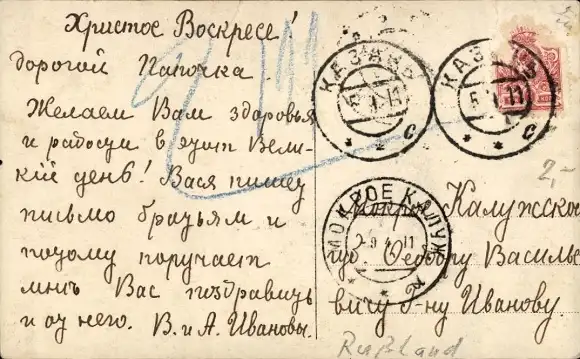 Христос Воскресе!
дорогой Папочка
Желаем Вам здоровья
и радости в этот Вели-
кiй день! Вася пишет
письмо братьям и
потому поручает
мнѣ Вас поздравить
и от него. В. и А. Ивановы.
КАЗАНЬ
КАЗАНЬ
МОКРОЕ КАЛУЖ
2,-
Мокрое Калужской
губ. Федору Василье
вичу Г-ну Иванову
Rußland